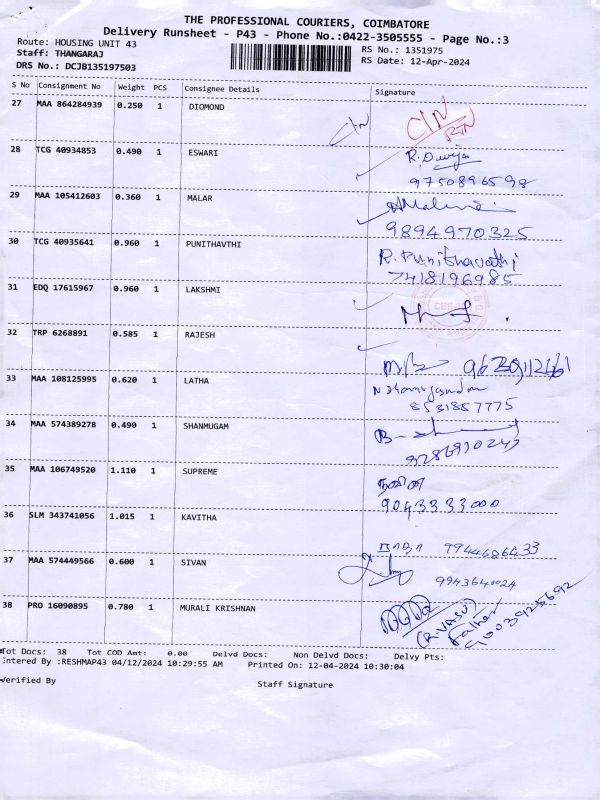 THE PROFESSIONAL COURIERS, COIMBATORE
Delivery Runsheet - P43 - Phone No.:0422-3505555 - Page No.:3
Route: HOUSING UNIT 43
RS No.: 1351975
Staff: THANGARAJ
RS Date: 12-Apr-2024
DRS No.: DCJB135197503
S No Consignment No Weight PCS Consignee Details Signature
27 MAA 864284939 0.250 1 DIOMOND
28 TCG 40934853 0.490 1 ESWARI R.
9750896598
29 MAA 105412603 0.360 1 MALAR
9894970325
30 TCG 40935641 0.960 1 PUNITHAVTHI R. Punithavathi
7418196985
31 EDQ 17615967 0.960 1 LAKSHMI
32 TRP 6268891 0.585 1 RAJESH
33 MAA 108125995 0.620 1 LATHA
8531857775
34 MAA 574389278 0.490 1 SHANMUGAM
35 MAA 106749520 1.110 1 SUPREME
9043333000
36 SLM 343741056 1.015 1 KAVITHA
9944686433
37 MAA 574449566 0.600 1 SIVAN
9943640024
38 PRO 16090895 0.780 1 MURALI KRISHNAN
(R.VASU)
Father
Tot Docs: 38 Tot COD Amt: 0.00 Delvd Docs: Non Delvd Docs: Delvy Pts:
Entered By :RESHMAP43 04/12/2024 10:29:55 AM Printed On: 12-04-2024 10:30:04
Verified By
Staff Signature